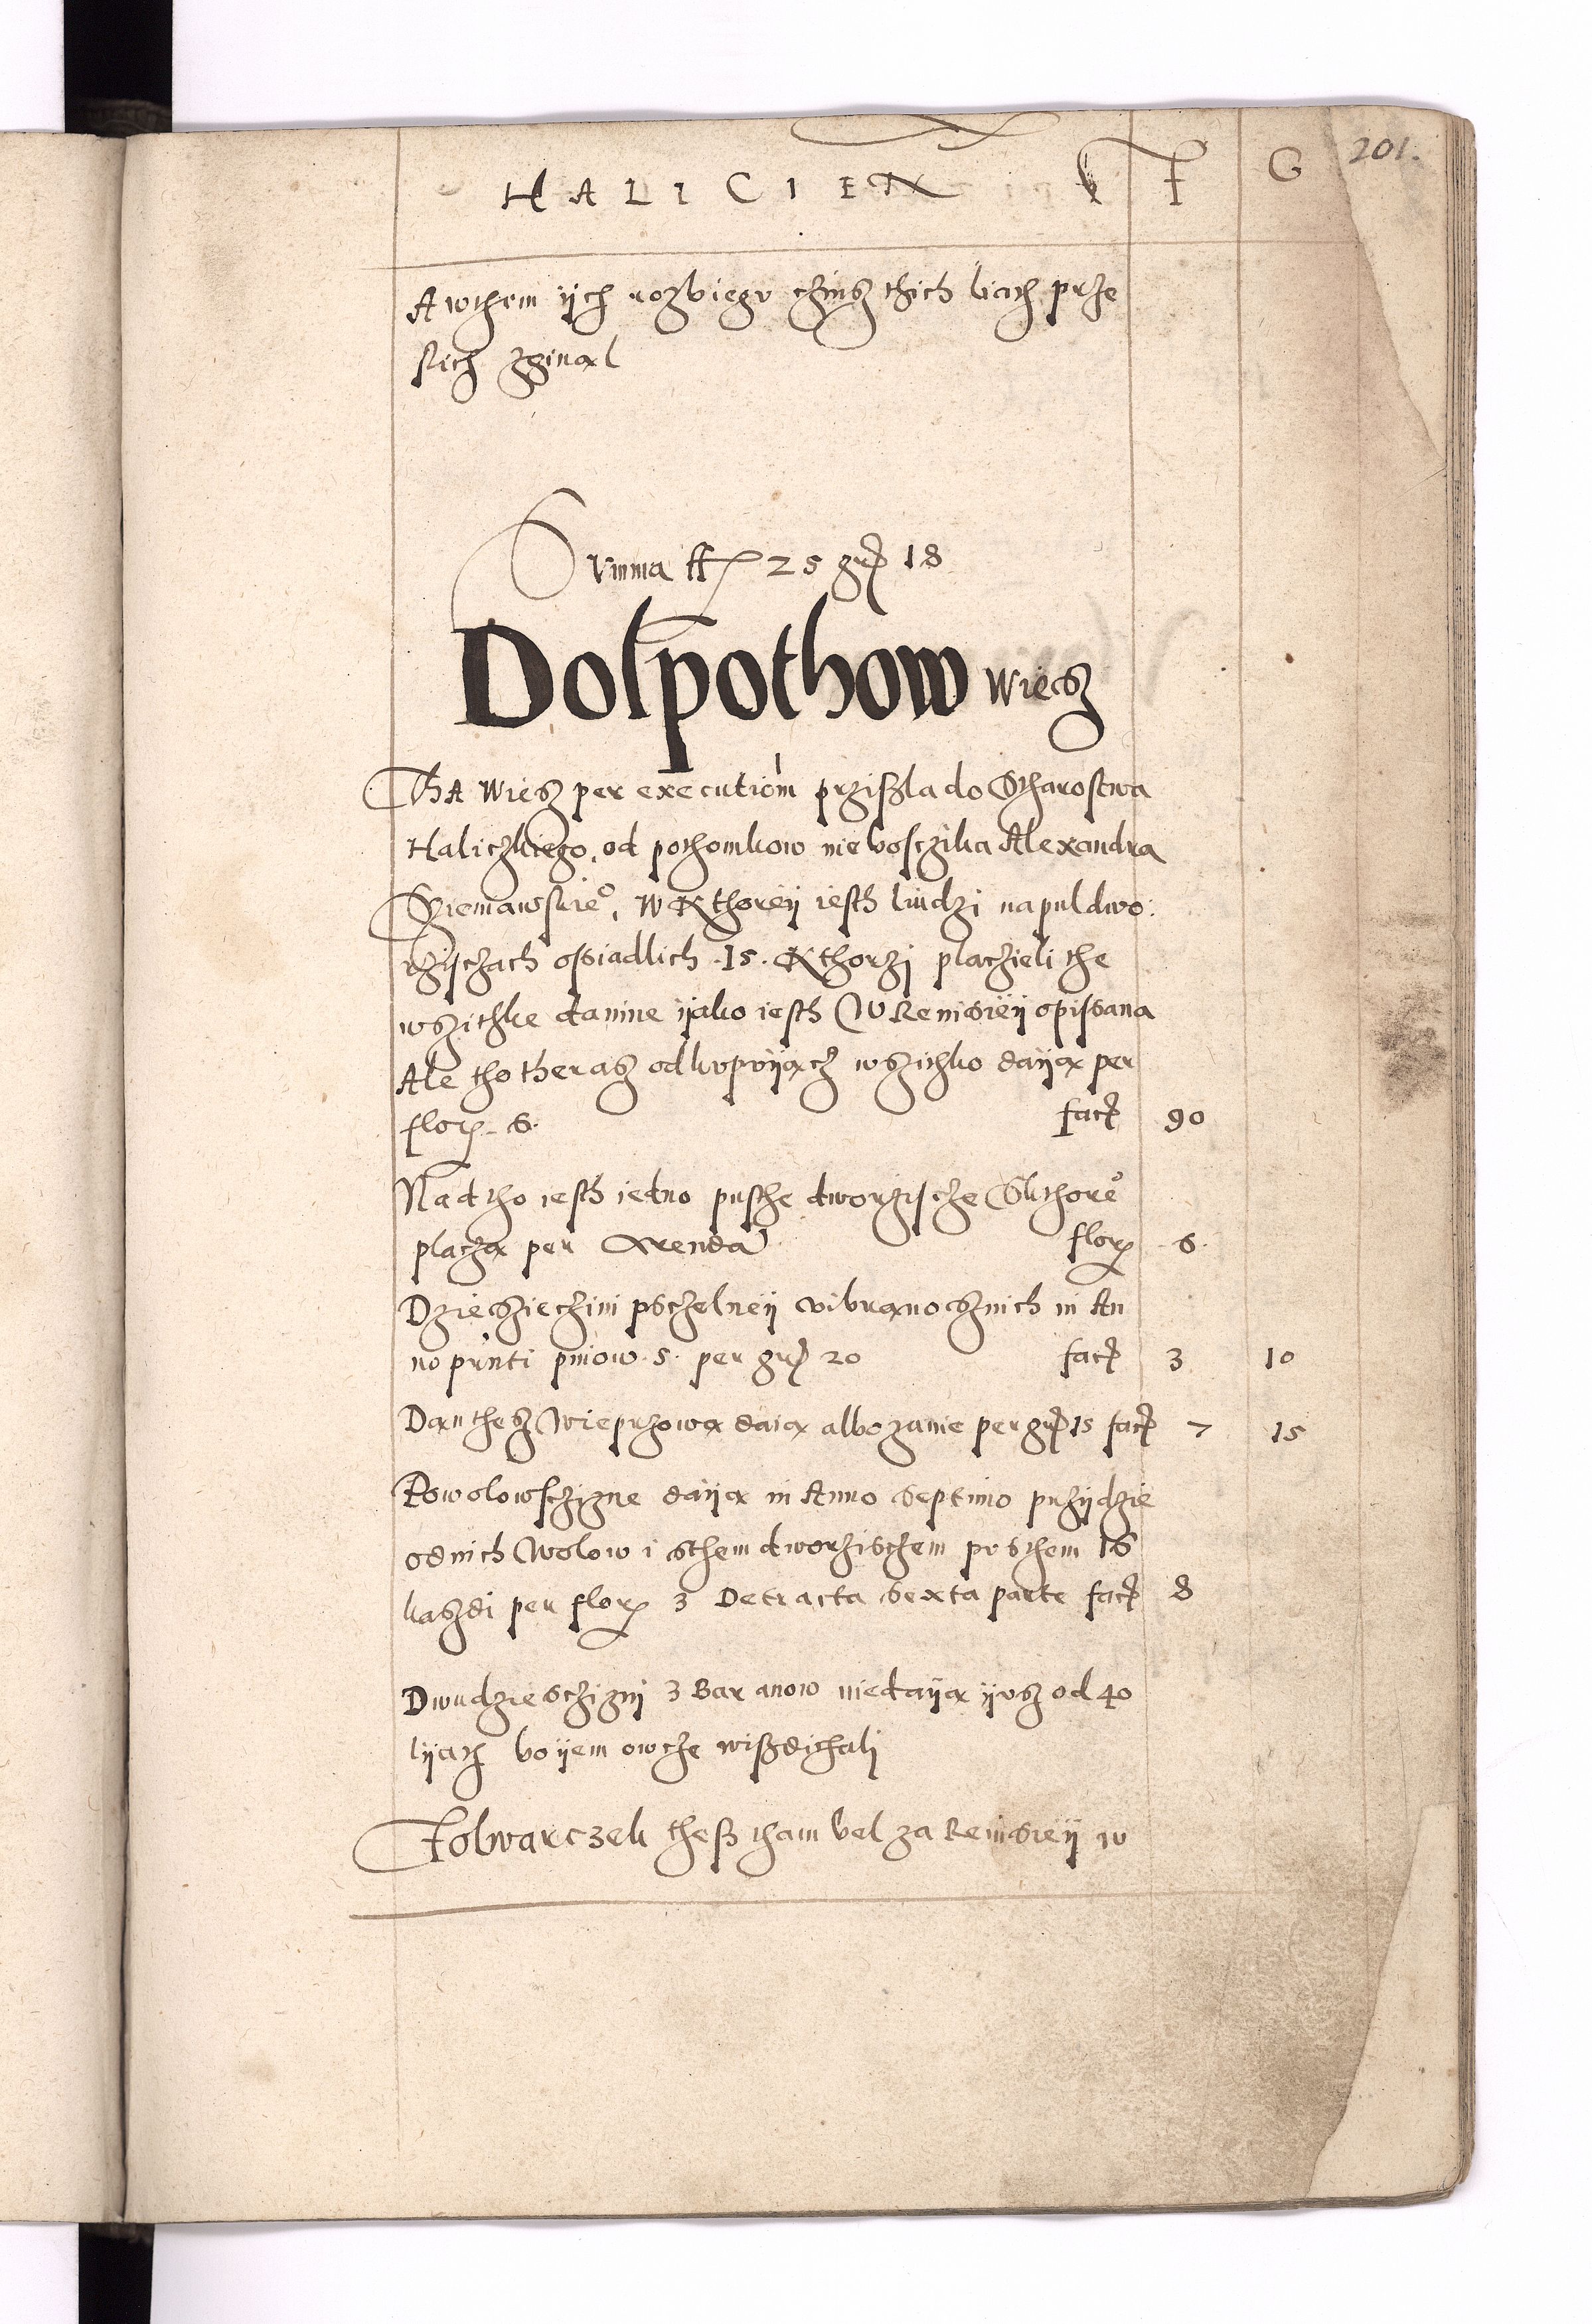 201.
HALICIEN F G
A wthem ijch rozbiego czinsz thich liath prze
stich zginal
Summa fl 25 gr 18
Dolpothow wiesz
Tha wiesz per executiom przissla do Stharostwa
Haliczkiego, od pothomkow niebosczika Alexandra
Sziemawskieo, w kthoreÿ iesth liudzi na puldwo:
rzisczach ossiadlich .15. kthorzj placzieli the
wszithke danine ijako iesth w Remissieÿ opissana
Ale tho therasz odkupuijacz wszithko daija per
flor 6. fact 90
Nad tho iesth iedno pusthe dworziscze s kthoreo
placza per Arenda flor 6.
Dziesziecini pschelneÿ vibrano sznich in An
no pnti pniow .5. per gr 20 fact 3 10
Dan thesz wieprzowa daia albo zanie per gr 15 fact 7 15
Powolowsczizne daija in Anno septimo prziidzie
od nich wolow i sthem dworzisczem pusthem 16
kaszdi per flor 3 Detracta sexta parte fact 8
Dwudziescziznj z Baranow niedaija iusz od 40
lijath bo ijem owcze wiszdichalj
Folwarczek thesz tham bel za Remissieÿ w